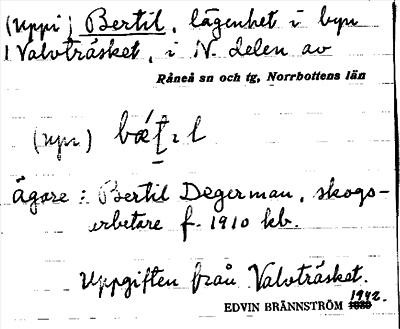 (uppi) Bertil, lägenhet i byn
Valvträsket, i N. delen av
Råneå sn och tg, Norrbottens län
(upe)
Ägare: Bertil Degerman, skogs-
arbetare f. 1910 kb.
Uppgiften från Valvträsket.
EDVIN BRÄNNSTRÖM 1942.